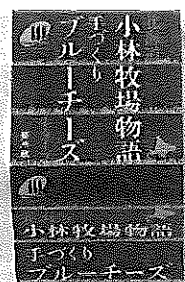 小林牧場物語
手づくり
ブルーチーズ
小林牧場物語
手づくり
ブルーチーズ